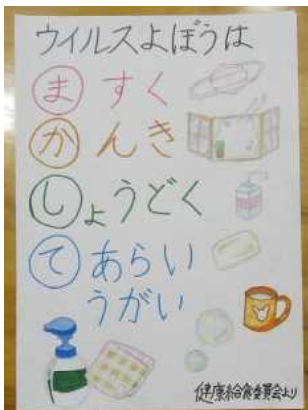 ウイルスよぼうは
ますく
かんき
しょうどく
てあらい
うがい
健康給食委員会より